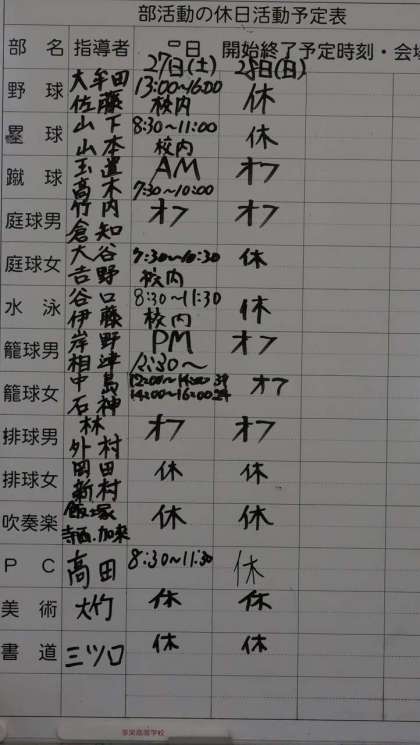 部活動の休日活動予定表
部 名 指導者 日 開始終了予定時刻・会場
27日(土) 28日(日)
野 球 大牟田 佐藤 13:00~16:00 校内 休
塁 球 山下 山本 8:30~11:00 校内 休
蹴 球 玉置 高木 AM 7:30~10:00 オフ
庭球男 竹内 倉知 オフ オフ
庭球女 大谷 吉野 7:30~10:30 校内 休
水 泳 谷口 伊藤 8:30~11:30 校内 休
籠球男 岸野 相津 PM 12:30~ オフ
籠球女 中島 石神 12:00~14:00 14:00~16:00 オフ
排球男 林 外村 オフ オフ
排球女 岡田 新村 休 休
吹奏楽 飯塚 寺西・加来 休 休
P C 高田 8:30~11:30 休
美 術 大竹 休 休
書 道 三ツ口 休 休